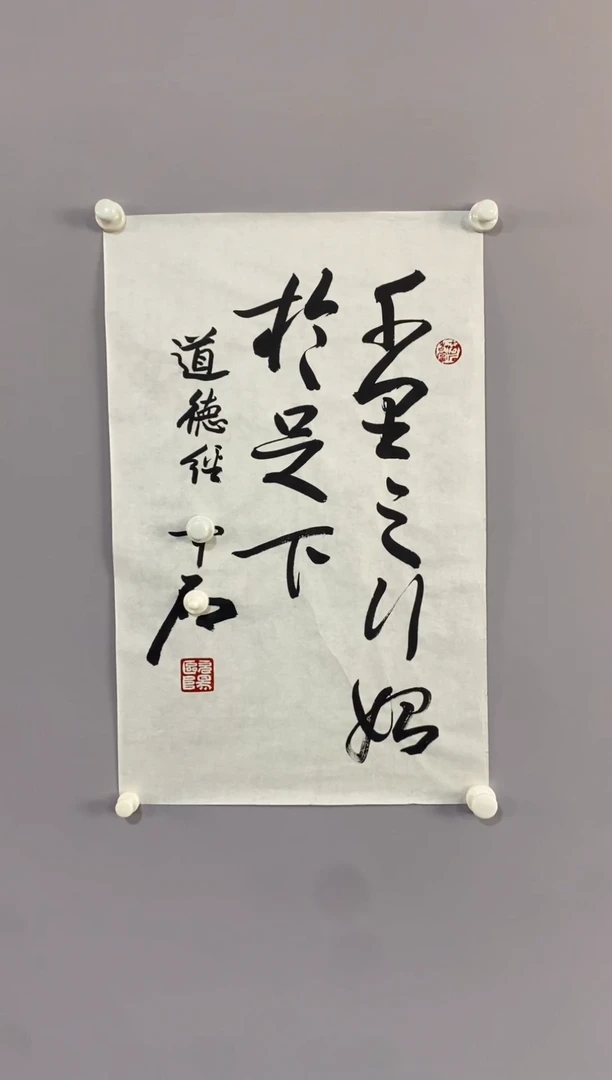 千里之行始
於足下
道德经
石